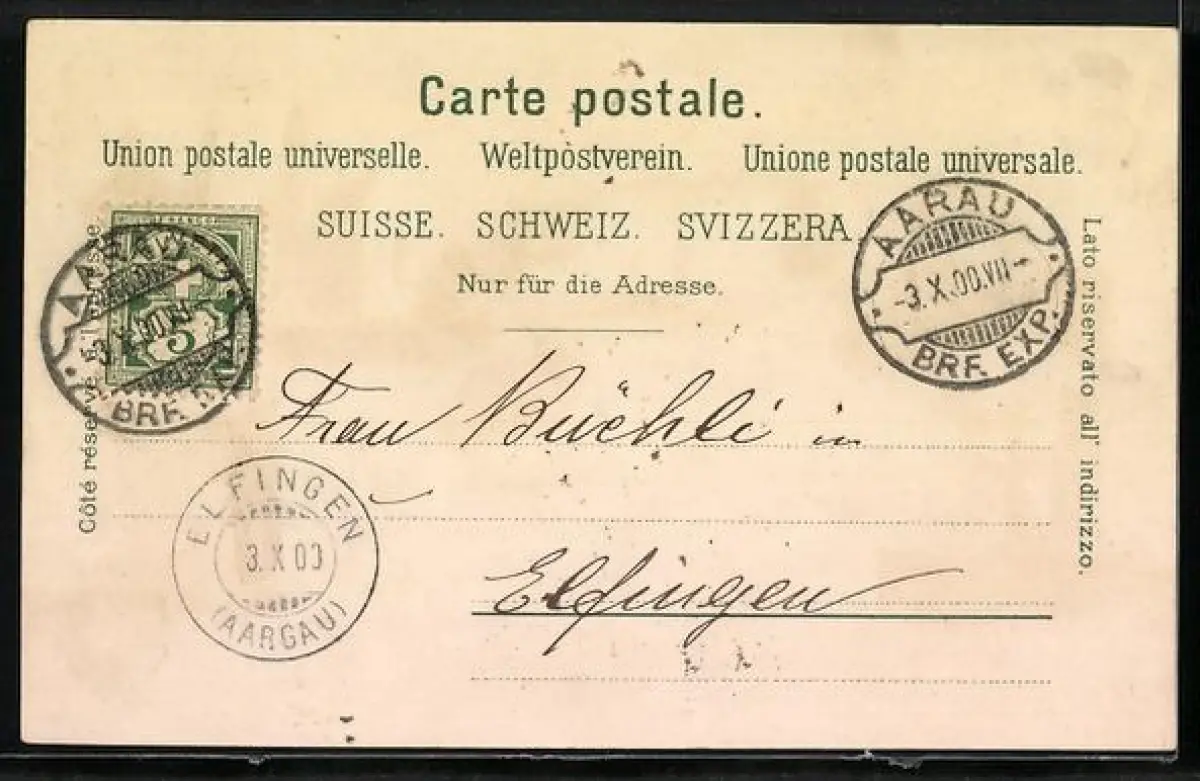 Carte postale.
Union postale universelle. Weltpostverein. Unione postale universale.
SUISSE. SCHWEIZ. SVIZZERA.
Nur für die Adresse.
FRANCO
5
AARAU
3.X.00.VII
BRF. EXP.
AARAU
-3.X.00.VII-
BRF. EXP.
Frau Büchli in
Elfingen
ELFINGEN
3.X 00
(AARGAU)
Côté réservé à l'adresse.
Lato riservato all' indirizzo.